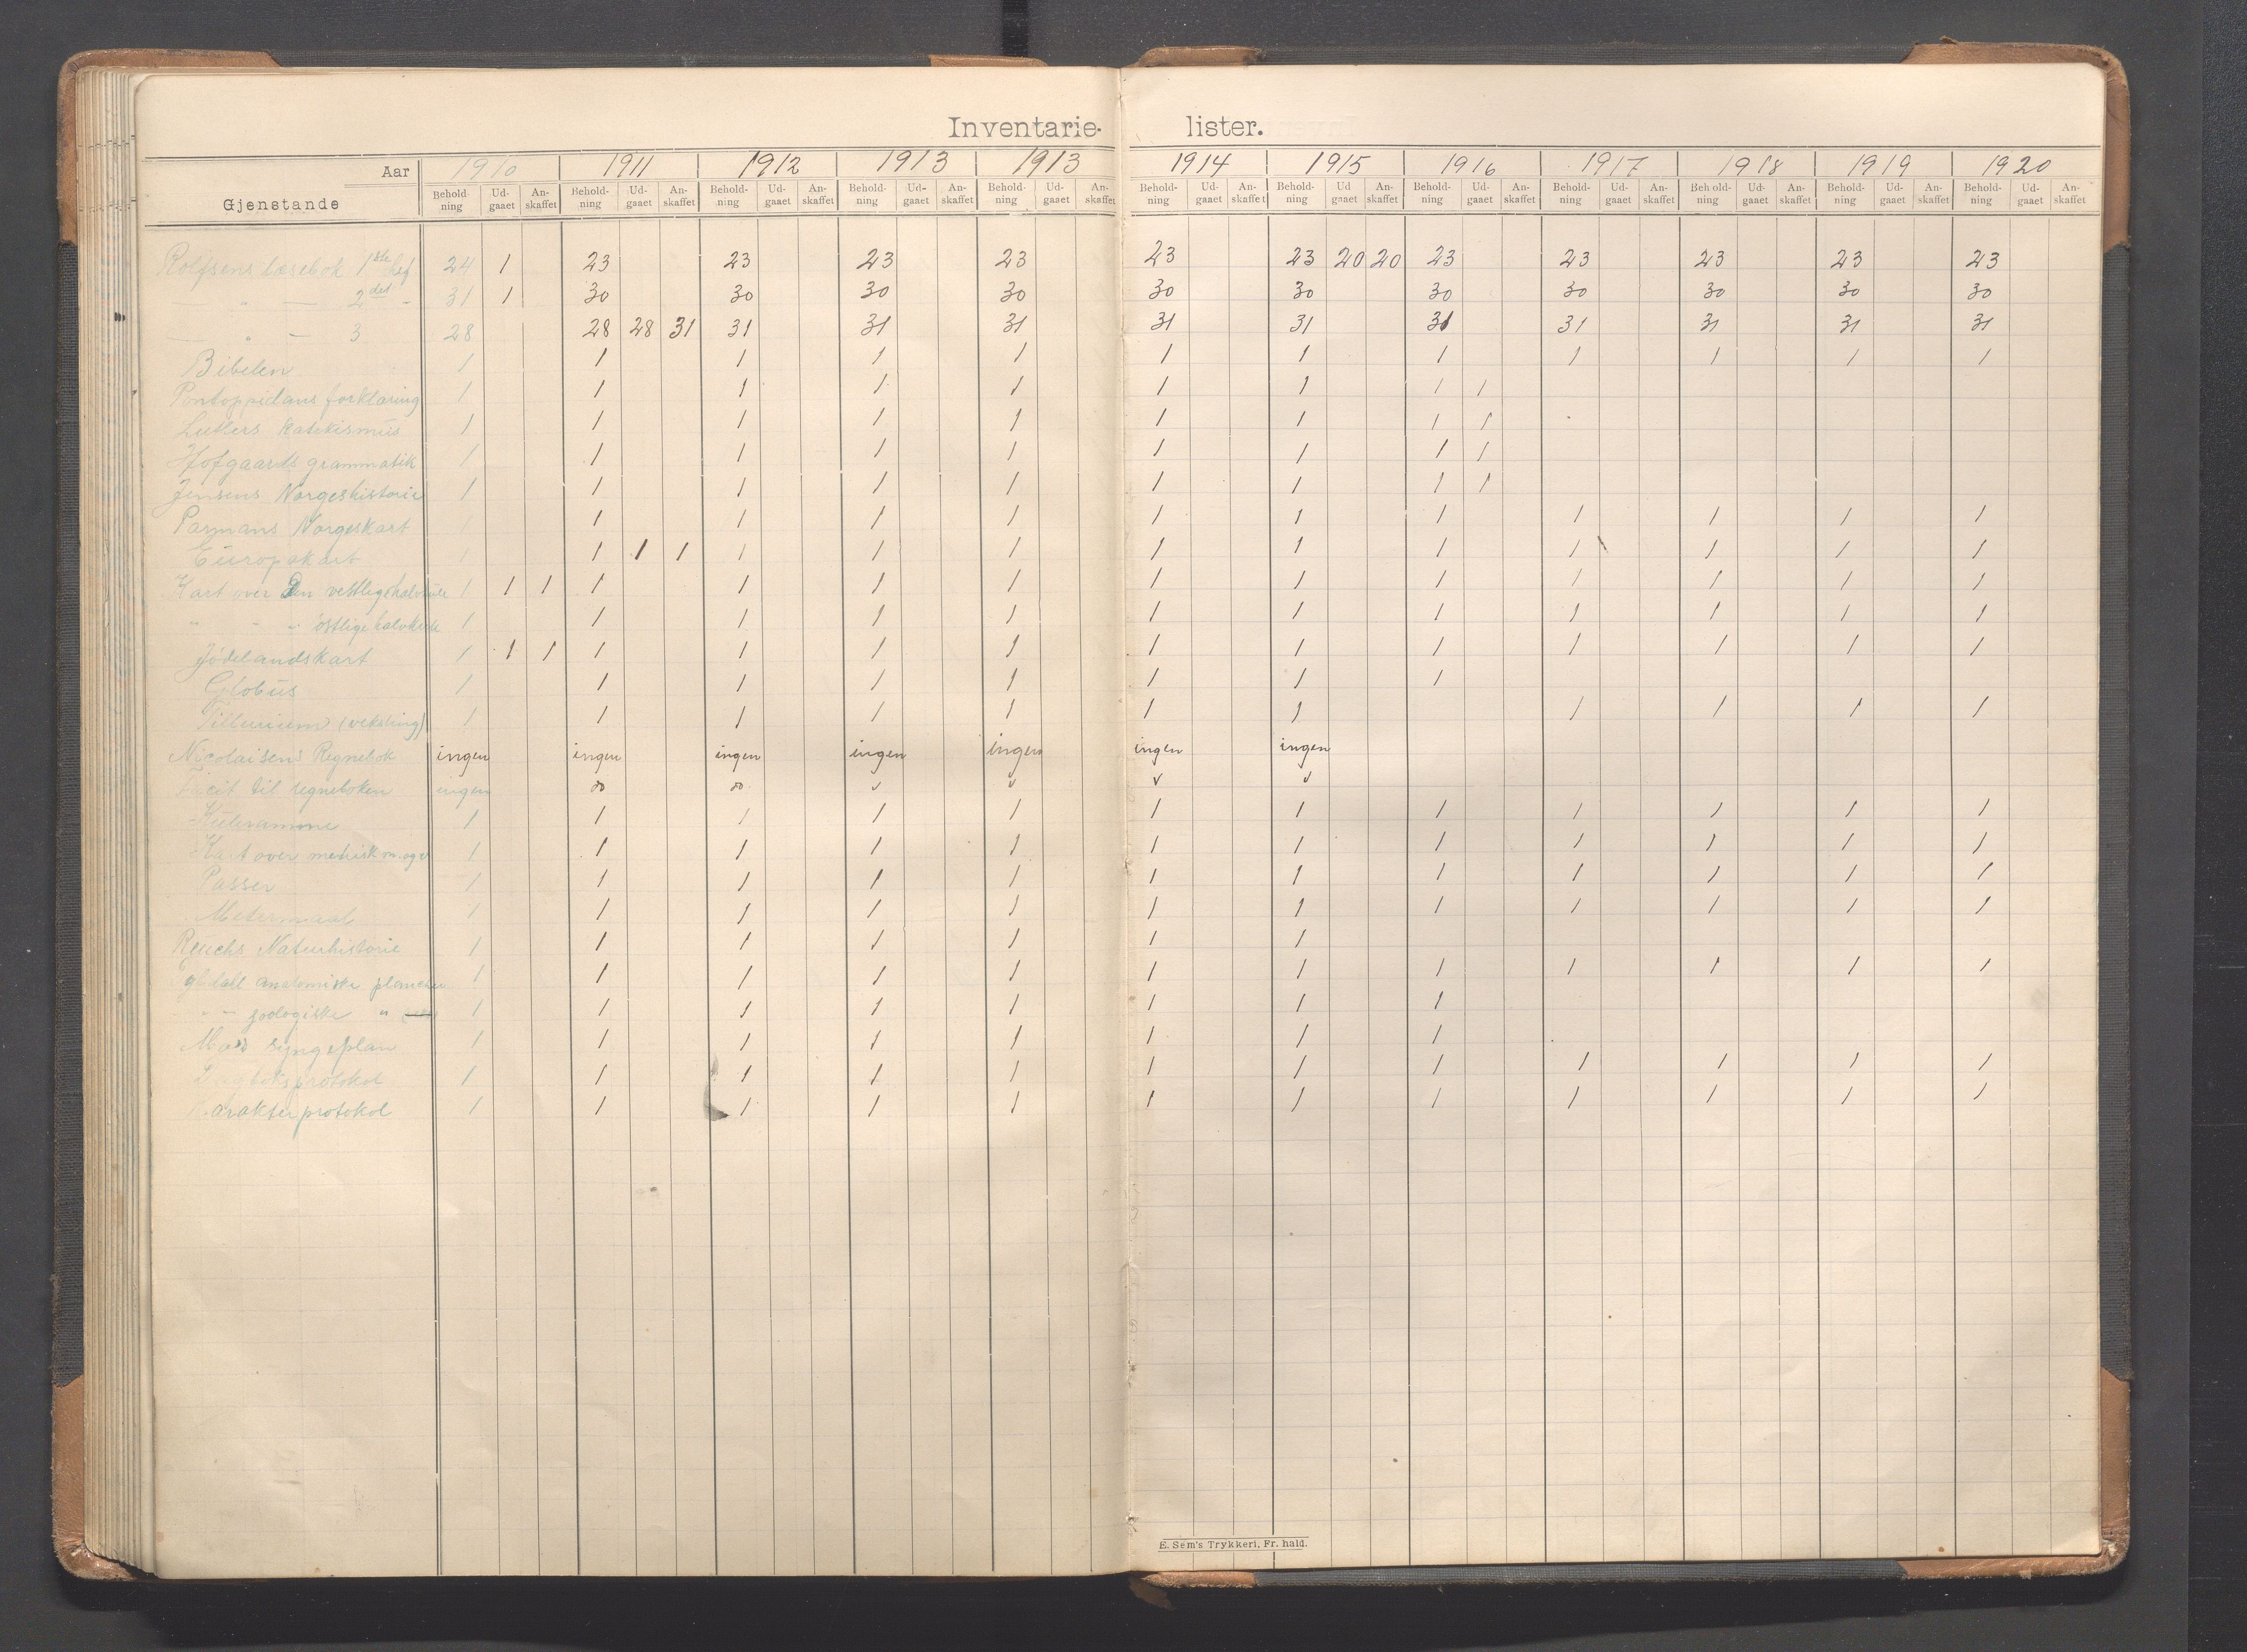 Inventarie- lister.
Aar 1910 1911 1912 1913 1913 1914 1915 1916 1917 1918 1919 1920
Gjenstande Behold-ning Ud-gaaet An-skaffet Behold-ning Ud-gaaet An-skaffet Behold-ning Ud-gaaet An-skaffet Behold-ning Ud-gaaet An-skaffet Behold-ning Ud-gaaet An-skaffet Behold-ning Ud-gaaet An-skaffet Behold-ning Ud gaaet An-skaffet Behold-ning Ud-gaaet An-skaffet Behold-ning Ud-gaaet An-skaffet Behold-ning Ud-gaaet An-skaffet Behold-ning Ud-gaaet An-skaffet Behold-ning Ud-gaaet An-skaffet
Rolfsens læsebok 1ste hef 24 1 23 23 23 23 23 23 20 20 23 23 23 23 23
— " — 2det - 31 1 30 30 30 30 30 30 30 30 30 30 30
— " — 3 28 28 28 31 31 31 31 31 31 31 31 31 31 31
Bibelen 1 1 1 1 1 1 1 1 1 1 1 1
Pontoppidans forklaring 1 1 1 1 1 1 1 1 1
Luthers katekismus 1 1 1 1 1 1 1 1 1
Hofgaards grammatik 1 1 1 1 1 1 1 1 1
Jensens Norgeshistorie 1 1 1 1 1 1 1 1 1
Parmans Norgeskart 1 1 1 1 1 1 1 1 1 1 1 1
Europakart 1 1 1 1 1 1 1 1 1 1 1 1 1 1
Kart over Den vestlige halvkule 1 1 1 1 1 1 1 1 1 1 1 1 1 1
" - " østlige halvkule 1 1 1 1 1 1 1 1 1 1 1 1
Jødelandskart 1 1 1 1 1 1 1 1 1 1 1 1 1 1
Globus 1 1 1 1 1 1 1 1
Tellurium 1 1 1 1 1 1 1 1 1 1 1
Nicolaisens Regnebok ingen ingen ingen ingen ingen ingen ingen
Facit til regneboken ingen do do " " " "
Kuleramme 1 1 1 1 1 1 1 1 1 1 1 1
Kart over metrisk m. og v 1 1 1 1 1 1 1 1 1 1 1 1
Passer 1 1 1 1 1 1 1 1 1 1 1 1
Metermaal 1 1 1 1 1 1 1 1 1 1 1 1
Reuchs Naturhistorie 1 1 1 1 1 1 1
anatomiske plancher 1 1 1 1 1 1 1 1 1 1 1 1
" - zoologiske " 1 1 1 1 1 1 1 1
syngeplan 1 1 1 1 1 1 1 1
Dagboksprotokol 1 1 1 1 1 1 1 1 1 1 1 1
Karakterprotokol 1 1 1 1 1 1 1 1 1 1 1 1
E. Sem's Trykkeri, Fr. hald.